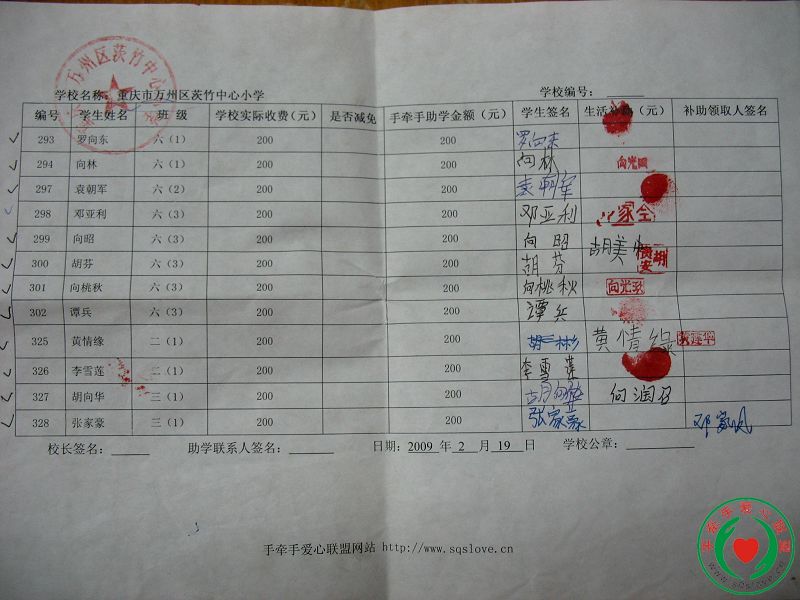 学校名称：重庆市万州区茨竹中心小学 学校编号：
万州区茨竹中心小学
编号 学生姓名 班 级 学校实际收费（元） 是否减免 手牵手助学金额（元） 学生签名 生活补助（元） 补助领取人签名
293 罗向东 六（1） 200 200 罗向东
294 向林 六（1） 200 200 向林
297 袁朝军 六（2） 200 200 袁朝军
298 邓亚利 六（3） 200 200 邓亚利
299 向昭 六（3） 200 200 向 昭 胡美
300 胡芬 六（3） 200 200 胡 芬
301 向桃秋 六（3） 200 200 向桃秋
302 谭兵 六（3） 200 200 谭兵
325 黄情缘 二（1） 200 200 黄情缘
326 李雪莲 二（1） 200 200 李雪莲
327 胡向华 三（1） 200 200 胡向华 向润召
328 张家豪 三（1） 200 200 张家豪
校长签名： 助学联系人签名： 日期：2009 年 2 月 19 日 学校公章：
手牵手爱心联盟网站 http://www.sqslove.cn
手牵手爱心联盟
www.sqslove.cn